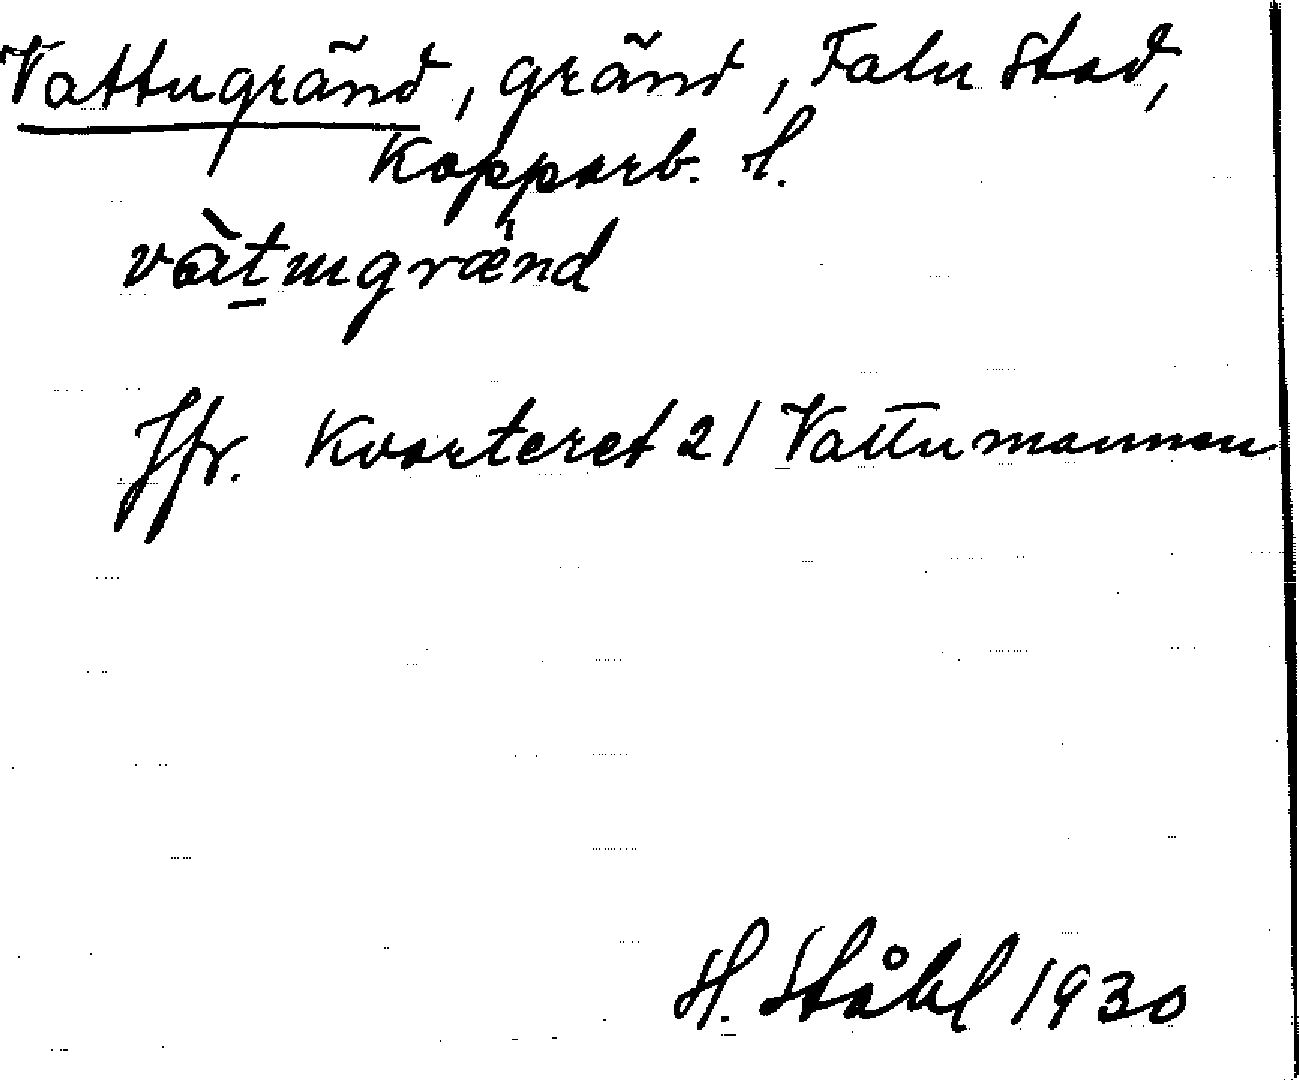 Vattugränd, gränd, Falu Stad,
Kopparb. l.
vàt̲ugræ̍nd
Jfr. Kvarteret 21 Vattumannen
H. Ståhl 1930